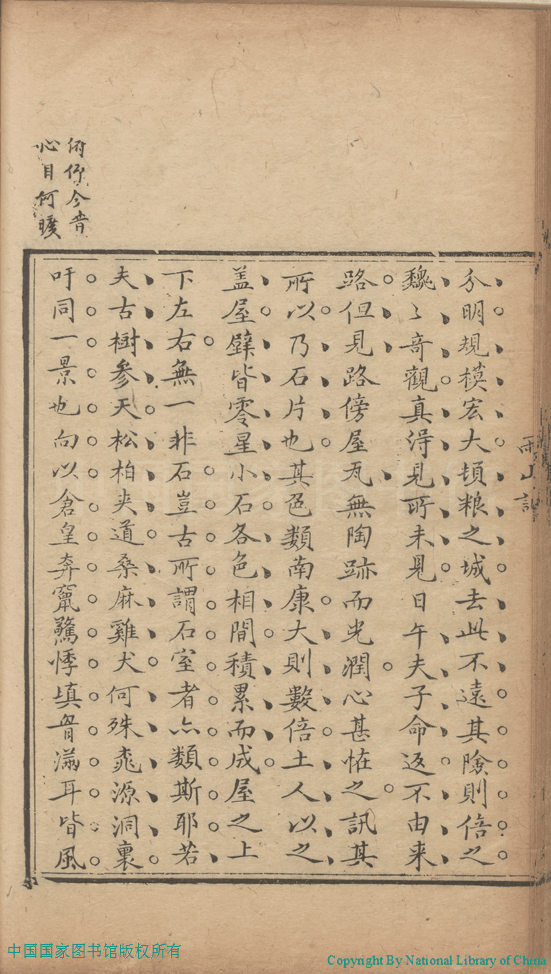 分明規模宏大頓粮之城去此不遠其險則倍之
魏〻奇觀真得見所未見日午夫子命返不由来
路但見路傍屋瓦無陶跡而光潤心甚恠之訊其
所以乃石片也其色類南康大則數倍土人以之
盖屋壁皆零星小石各色相間積累而成屋之上
下左右無一非石豈古所謂石室者亦類斯耶若
夫古樹參天松柏夾道桑麻雞犬何殊桃源洞裏
吁同一景也向以倉皇奔竄驚悸填胷滿耳皆風
俯仰今昔
心目何曠
中国国家图书馆版权所有
Copyright By National Library of China